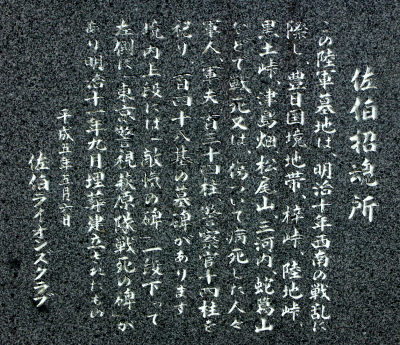 佐伯招魂所
この陸軍墓地は、明治十年西南の戦乱に
際し、豊日国境地帯、梓峠、陸地峠、
黒土峠、津島畑、松尾山、三河内、蛇葛山
などで戦死又は、傷ついて病死した人々
軍人、軍夫百三十四柱、警察官十四柱を
祀り、百四十八基の墓碑があります
境内上段には「敵愾の碑」一段下って
左側に「東京警視萩原隊戦死の碑」が
あり明治十一年九月埋葬建立されたもの
平成五年五月 日
佐伯ライオンズクラブ